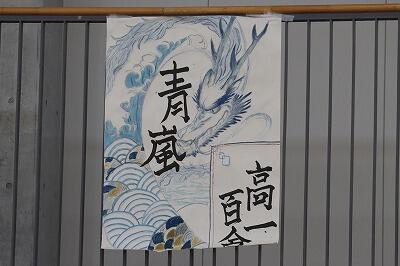 青嵐
高一
百倉